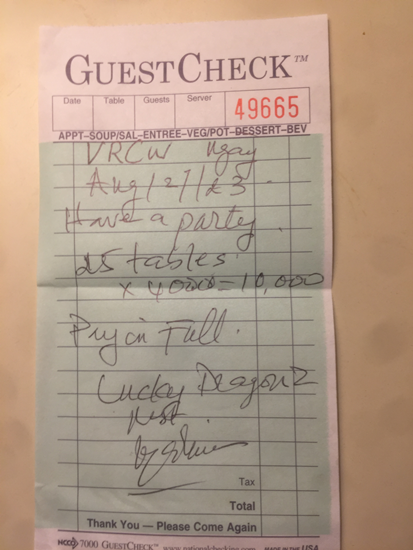 GUESTCHECK™
Date Table Guests Server
49665
APPT-SOUP/SAL-ENTREE-VEG/POT-DESSERT-BEV
VRCW ngay
Aug/27/23
Have a party.
25 tables
x 400 = 10,000
Pay in Full.
Lucky Dragon 2
Rest.
Tax
Total
Thank You — Please Come Again
7000 GUESTCHECK™ www.nationalchecking.com MADE IN THE USA